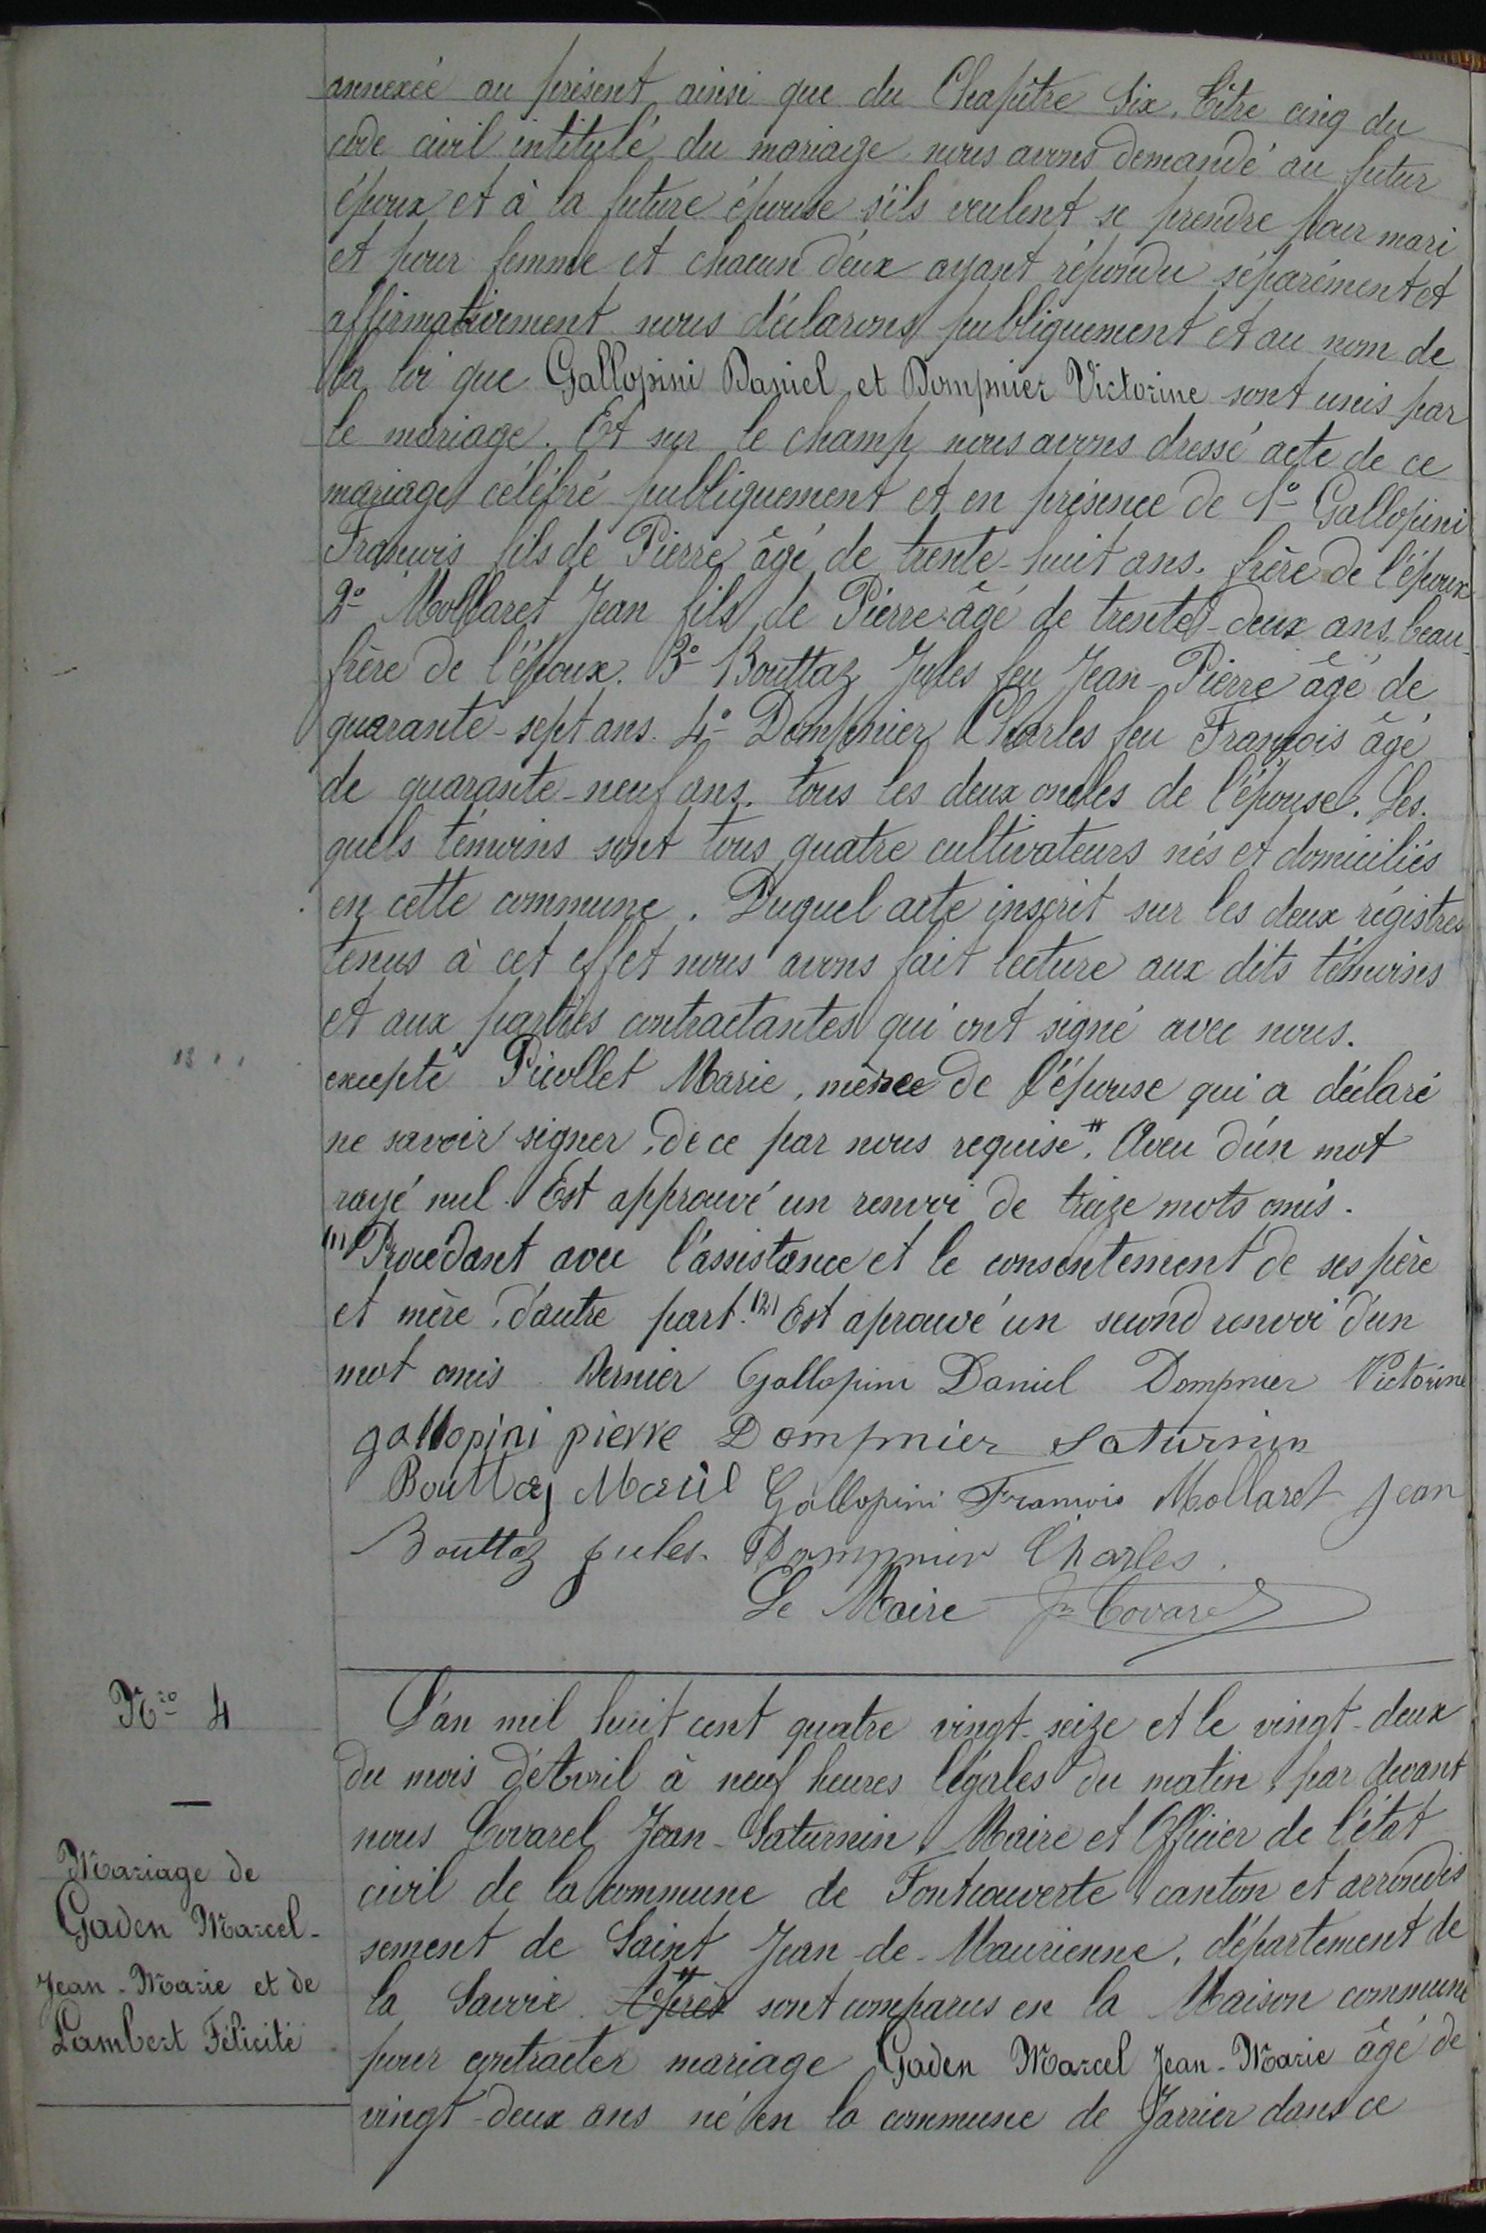 annexée au présent ainsi que du Chapitre Six, titre cinq du
code civil intitulé du mariage nous avons demandé au futur
époux et à la future épouse s'ils veulent se prendre pour mari
et pour femme et chacun d'eux ayant répondu séparément et
affirmativement nous déclarons publiquement et au nom de
la loi que Gallopini Daniel et Dompnier Victorine sont unis par
le mariage. Et sur le champ nous avons dressé acte de ce
mariage célébré publiquement et en présence de 1° Gallopini
François fils de Pierre âgé de trente-huit ans. frère de l'époux
2° Mollaret Jean fils de Pierre âgé de trente-deux ans, beau-
frère de l'époux. 3° Bouttaz Jules feu Jean-Pierre âgé de
quarante-sept ans. 4° Dompnier Charles feu François âgé
de quarante-neuf ans. tous les deux oncles de l'épouse. Les-
quels témoins sont tous quatre cultivateurs nés et domiciliés
en cette commune. Duquel acte inscrit sur les deux régistres
tenus à cet effet nous avons fait lecture aux dits témoins
et aux parties contractantes qui ont signé avec nous.
excepté Picollet Marie, mère de l'épouse qui a déclaré
ne savoir signer, de ce par nous requise. Aveu d'un mot
rayé nul. Est approuvé un renvoi de treize mots omis.
(1) Procédant avec l'assistance et le consentement de ses père
et mère, d'autre part. (2) Est aprouvé un second renvoi d'un
mot omis Dernier Gallopini Daniel Dompnier Victorine
gallopini pierre Dompnier Saturnin
Bouttaz Gallopini François Mollaret Jean
Bouttaz Jules. Dompnier Charles.
Le Maire Jn Covarel
Nro 4
Mariage de
Gaden Marcel-
Jean-Marie et de
Lambert Félicité
L'an mil huit cent quatre vingt-seize et le vingt-deux
du mois d'Avril à neuf heures légales du matin, par devant
nous Covarel Jean-Saturnin, Maire et Officier de l'état
civil de la commune de Fontcouverte canton et arrondis
sement de Saint Jean-de-Maurienne, département de
la Savoie. Après sont comparus en la Maison commune
pour contracter mariage Gaden Marcel Jean-Marie âgé de
vingt-deux ans né en la commune de Jarrier dans ce